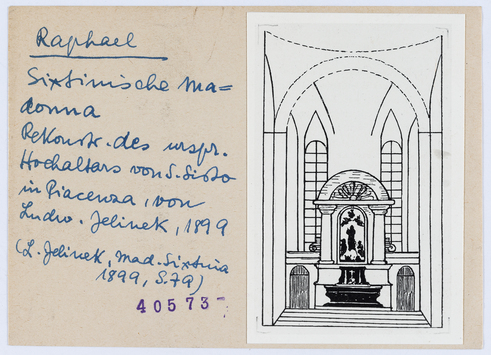 Raphael
Sixtinische Ma=
donna
Rekonstr. des urspr.
Hochaltars von S. Sisto
in Piacenza, von
Ludw. Jelinek, 1899
(L. Jelinek, Mad. Sixtina
1899, S. 79)
40573